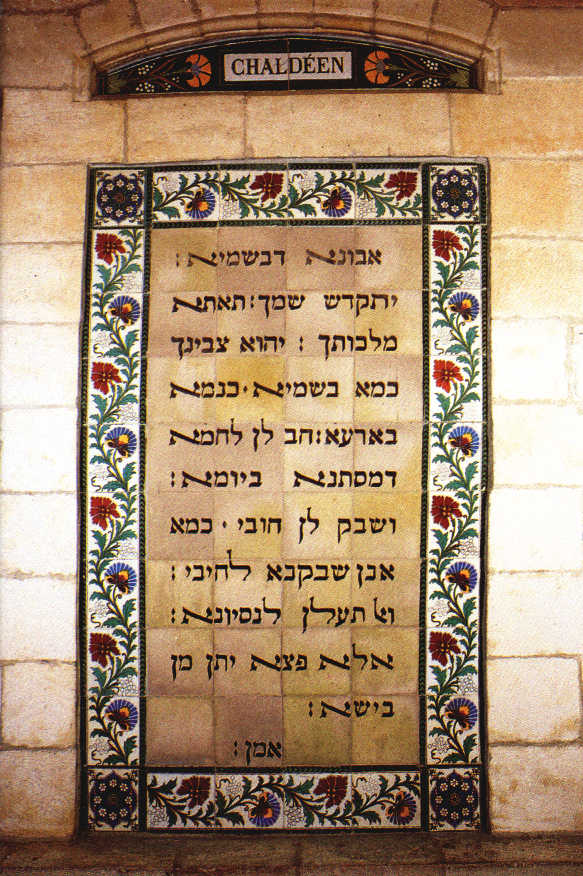 CHALDÉEN
אבונא דבשמיא :
יתקדש שמך : תאתא
מלכותך : יהוא צבינך
כמא בשמיא · כנמא
בארעא : הב לן לחמא
דמסתנא ביומא :
ושבק לן חובי · כמא
אנן שבקנא לחיבי :
ולא תעלן לנסיונא :
אלא פצא יתן מן
בישא :
אמן :